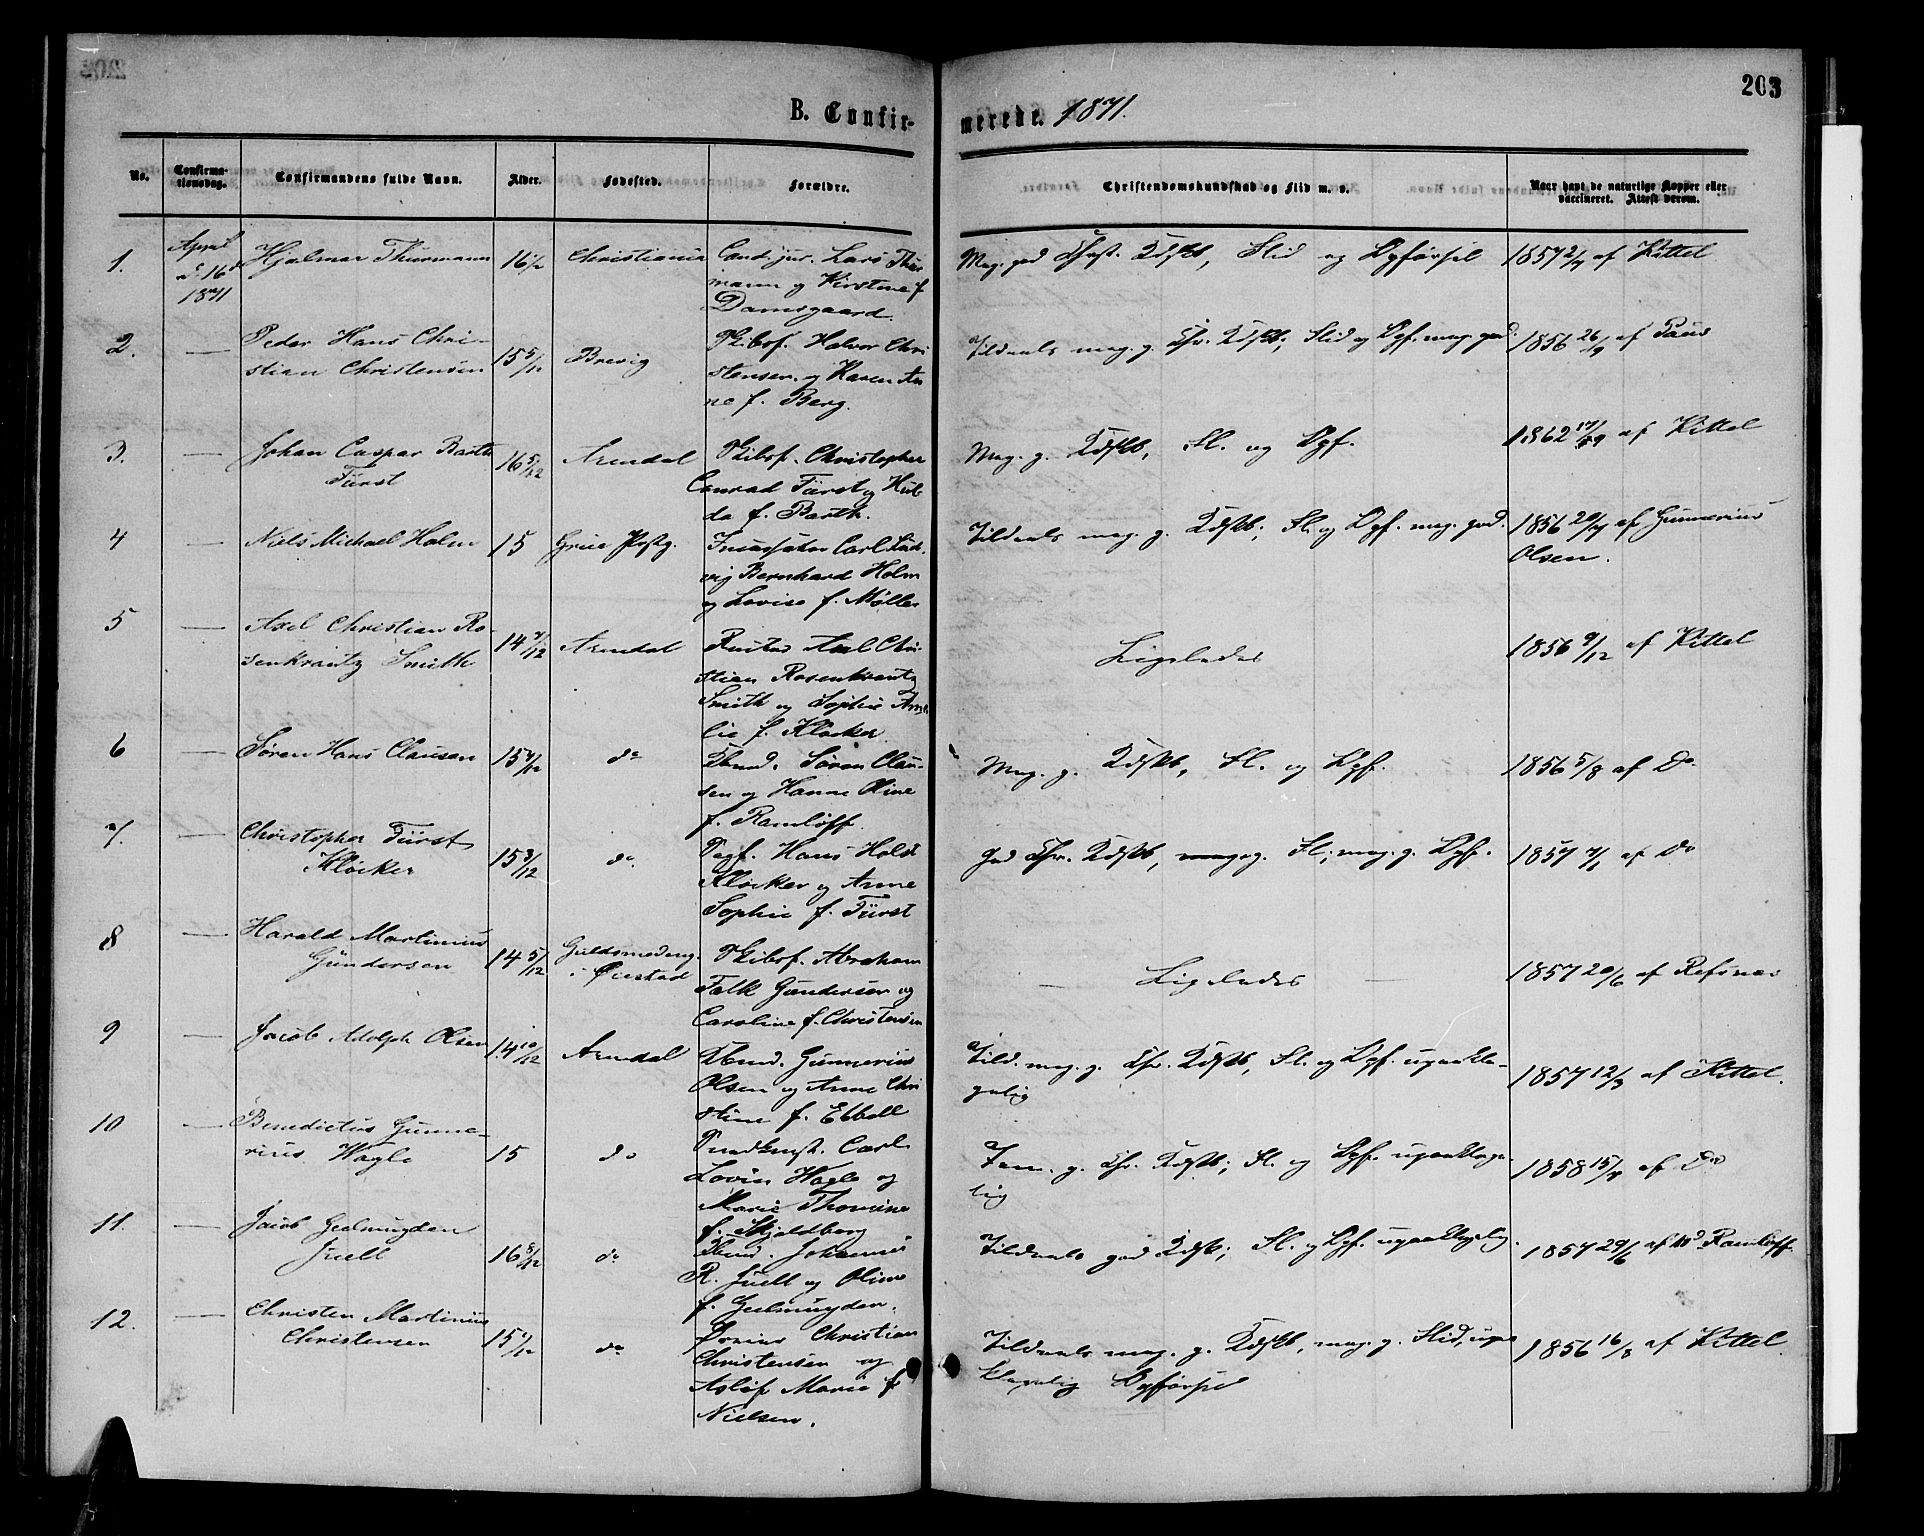 203
B. Confirmerede. 1871.
No. Confirmationsdag. Confirmandens fulde Navn. Alder. Fødested. Forældre. Christendomskundskab og Flid m. v. Naar havt de naturlige Kopper eller vaccineret. Attest derom.
1. April d. 16de 1871 Hjalmar Thurmann 16 1/2 Christiania Cand. jur. Lars Thur-
mann og Kirstine f.
Damsgaard.
Meg. god Chr. Kdskb, Flid og Opførsel 1857 2/7 af Kittel
2. — Peder Hans Chri-
stian Christensen 15 5/12 Brevig Skibsf. Halvor Chri-
stensen og Karen An-
ne f. Berg.
Tildeels meg. g. Chr. Kdskb; Flid og Opf. meg. god. 1856 26/9 af Paus
3. — Johan Caspar Barth
Fürst 16 5/12 Arendal Skibsf. Christopher
Conrad Fürst og Hul-
da f. Barth.
Meg. g. Kdskb, Fl. og Opf. 1862 af Kittel
4 — Niels Michael Holm 15 Grue Pstg. Carl Lud-
vig Bernhard Holm
og Lovise f. Møller
Tildeels meg. g. Kdskb; Fl. og Opf. meg. god. 1856 20/7 af Gunnerius
Olsen.
5 — Axel Christian Ro-
senkrantz Smith 14 7/12 Arendal Axel Chri-
stian Rosenkrantz
Smith og Sophie Ama-
lie f. Kløcker
Ligeledes 1856 9/12 af Kittel
6 — Søren Hans Clausen 15 4/12 do Søren Clau-
sen og Hanne Oline
f. Ramløff.
Meg. g. Kdskb, Fl. og Opf. 1856 5/8 af Do
7. — Christopher Fürst
Kløcker 15 3/12 do. Hans Holst
Kløcker og Anne
Sophie f. Fürst
God Chr. Kdskb, meg. g. Fl; meg. g. Opf. 1857 af Do
8 — Harald Martinius
Gundersen 14 5/12 Guldsmedeng.
i Øiestad Skibsf. Abraham
Falk Gundersen og
Caroline f. Christensen
— Ligeledes — 1857 20/6 af Refsnæs
9 — Jacob Adolph Olsen 14 10/12 Arendal Gunnerius
Olsen og Anne Chri-
stine f. Ebbell
Tild. meg. g. Chr. Kdskb, Fl. og Opf. upaakla-
gelig 1857 12/9 af Kittel.
10 — Benedictus Gunne-
rius Wagle 15 do Carl
Lovin Wagle og
Marie Thomine
f. Skjoldborg
Tem. g. Chr. Kdskb; Fl. og Opf. upaaklage-
lig 1858 15/7 af Do
11. — Jacob Geelmuyden
Juell 16 8/12 do Johannes
R. Juell og Oline
f. Geelmuyden.
Tildeels god Kdskb; Fl. og Opf. upaaklagelig. 1857 29/6 af Md. Ramløff.
12. — Christen Martinius
Christensen 15 4/12 do Christian
Christensen og
Aslöf Marie f.
Nielsen.
Tildeels meg. g. Kdskb, meg. g. Flid, upaa-
klagelig Opførsel 1856 16/8 af Kittel.